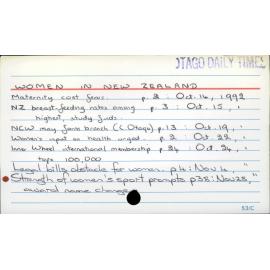 OTAGO DAILY TIMES
WOMEN IN NEW ZEALAND
Maternity cost fears. p. 2 : Oct. 14, 1992
NZ breast-feeding rates among p. 3 : Oct. 15, "
highest, study finds.
NCW may form branch (C.Otago) p. 13 : Oct. 19, "
Women's input on health urged. p. 2 : Oct. 22, "
Inner Wheel international membership p. 24 : Oct. 24, "
tops 100,000
Legal bills obstacle for women. p. 4 : Nov. 4, "
Strength of women's sport prompts p38: Nov 28, "
award name change.
53/C